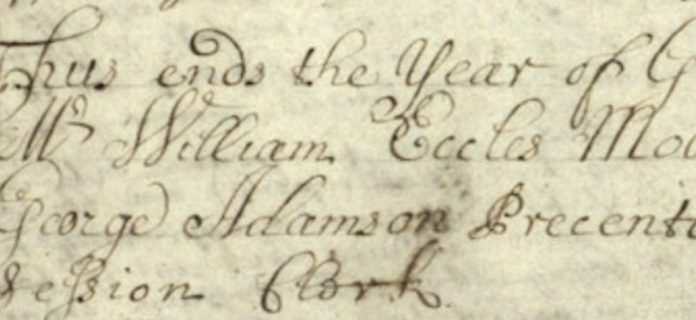 Thus ends the Year of G
Mr William Eccles Mod
George Adamson Precento
Session Clerk